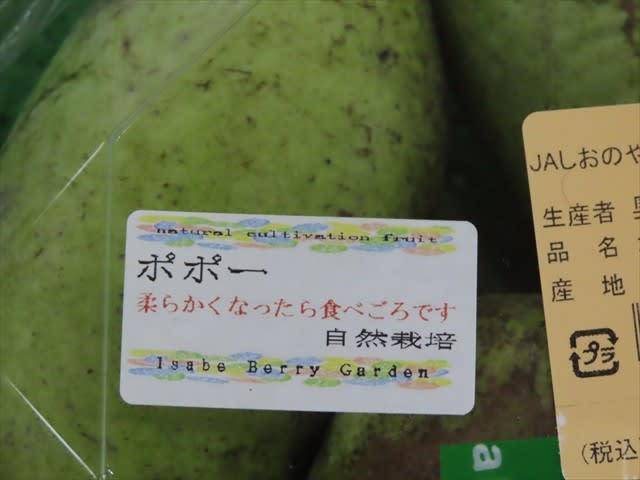 natural cultivation fruit
ポポー
柔らかくなったら食べごろです
自然栽培
Isabe Berry Garden
JAしおのや
生産者
品名
産地
プラ
(税込
a